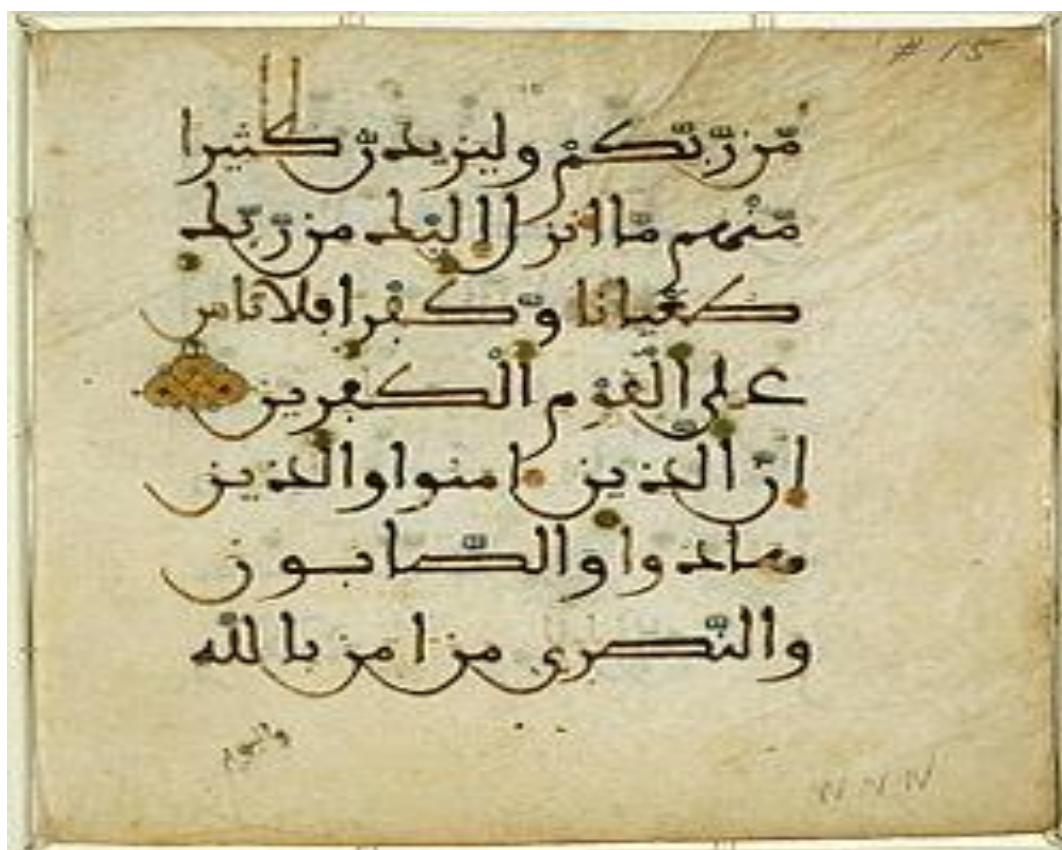 # 15
مّن رّبّكم وليزيدنّ كثيرا
مّنهم مّا انزل اليك من رّبّك
طغينا وّكفرا فلا تاس
على القوم الكفرين
انّ الذين امنوا والذين
هادوا والصّابون
والنّصرى من امن بالله
واليوم